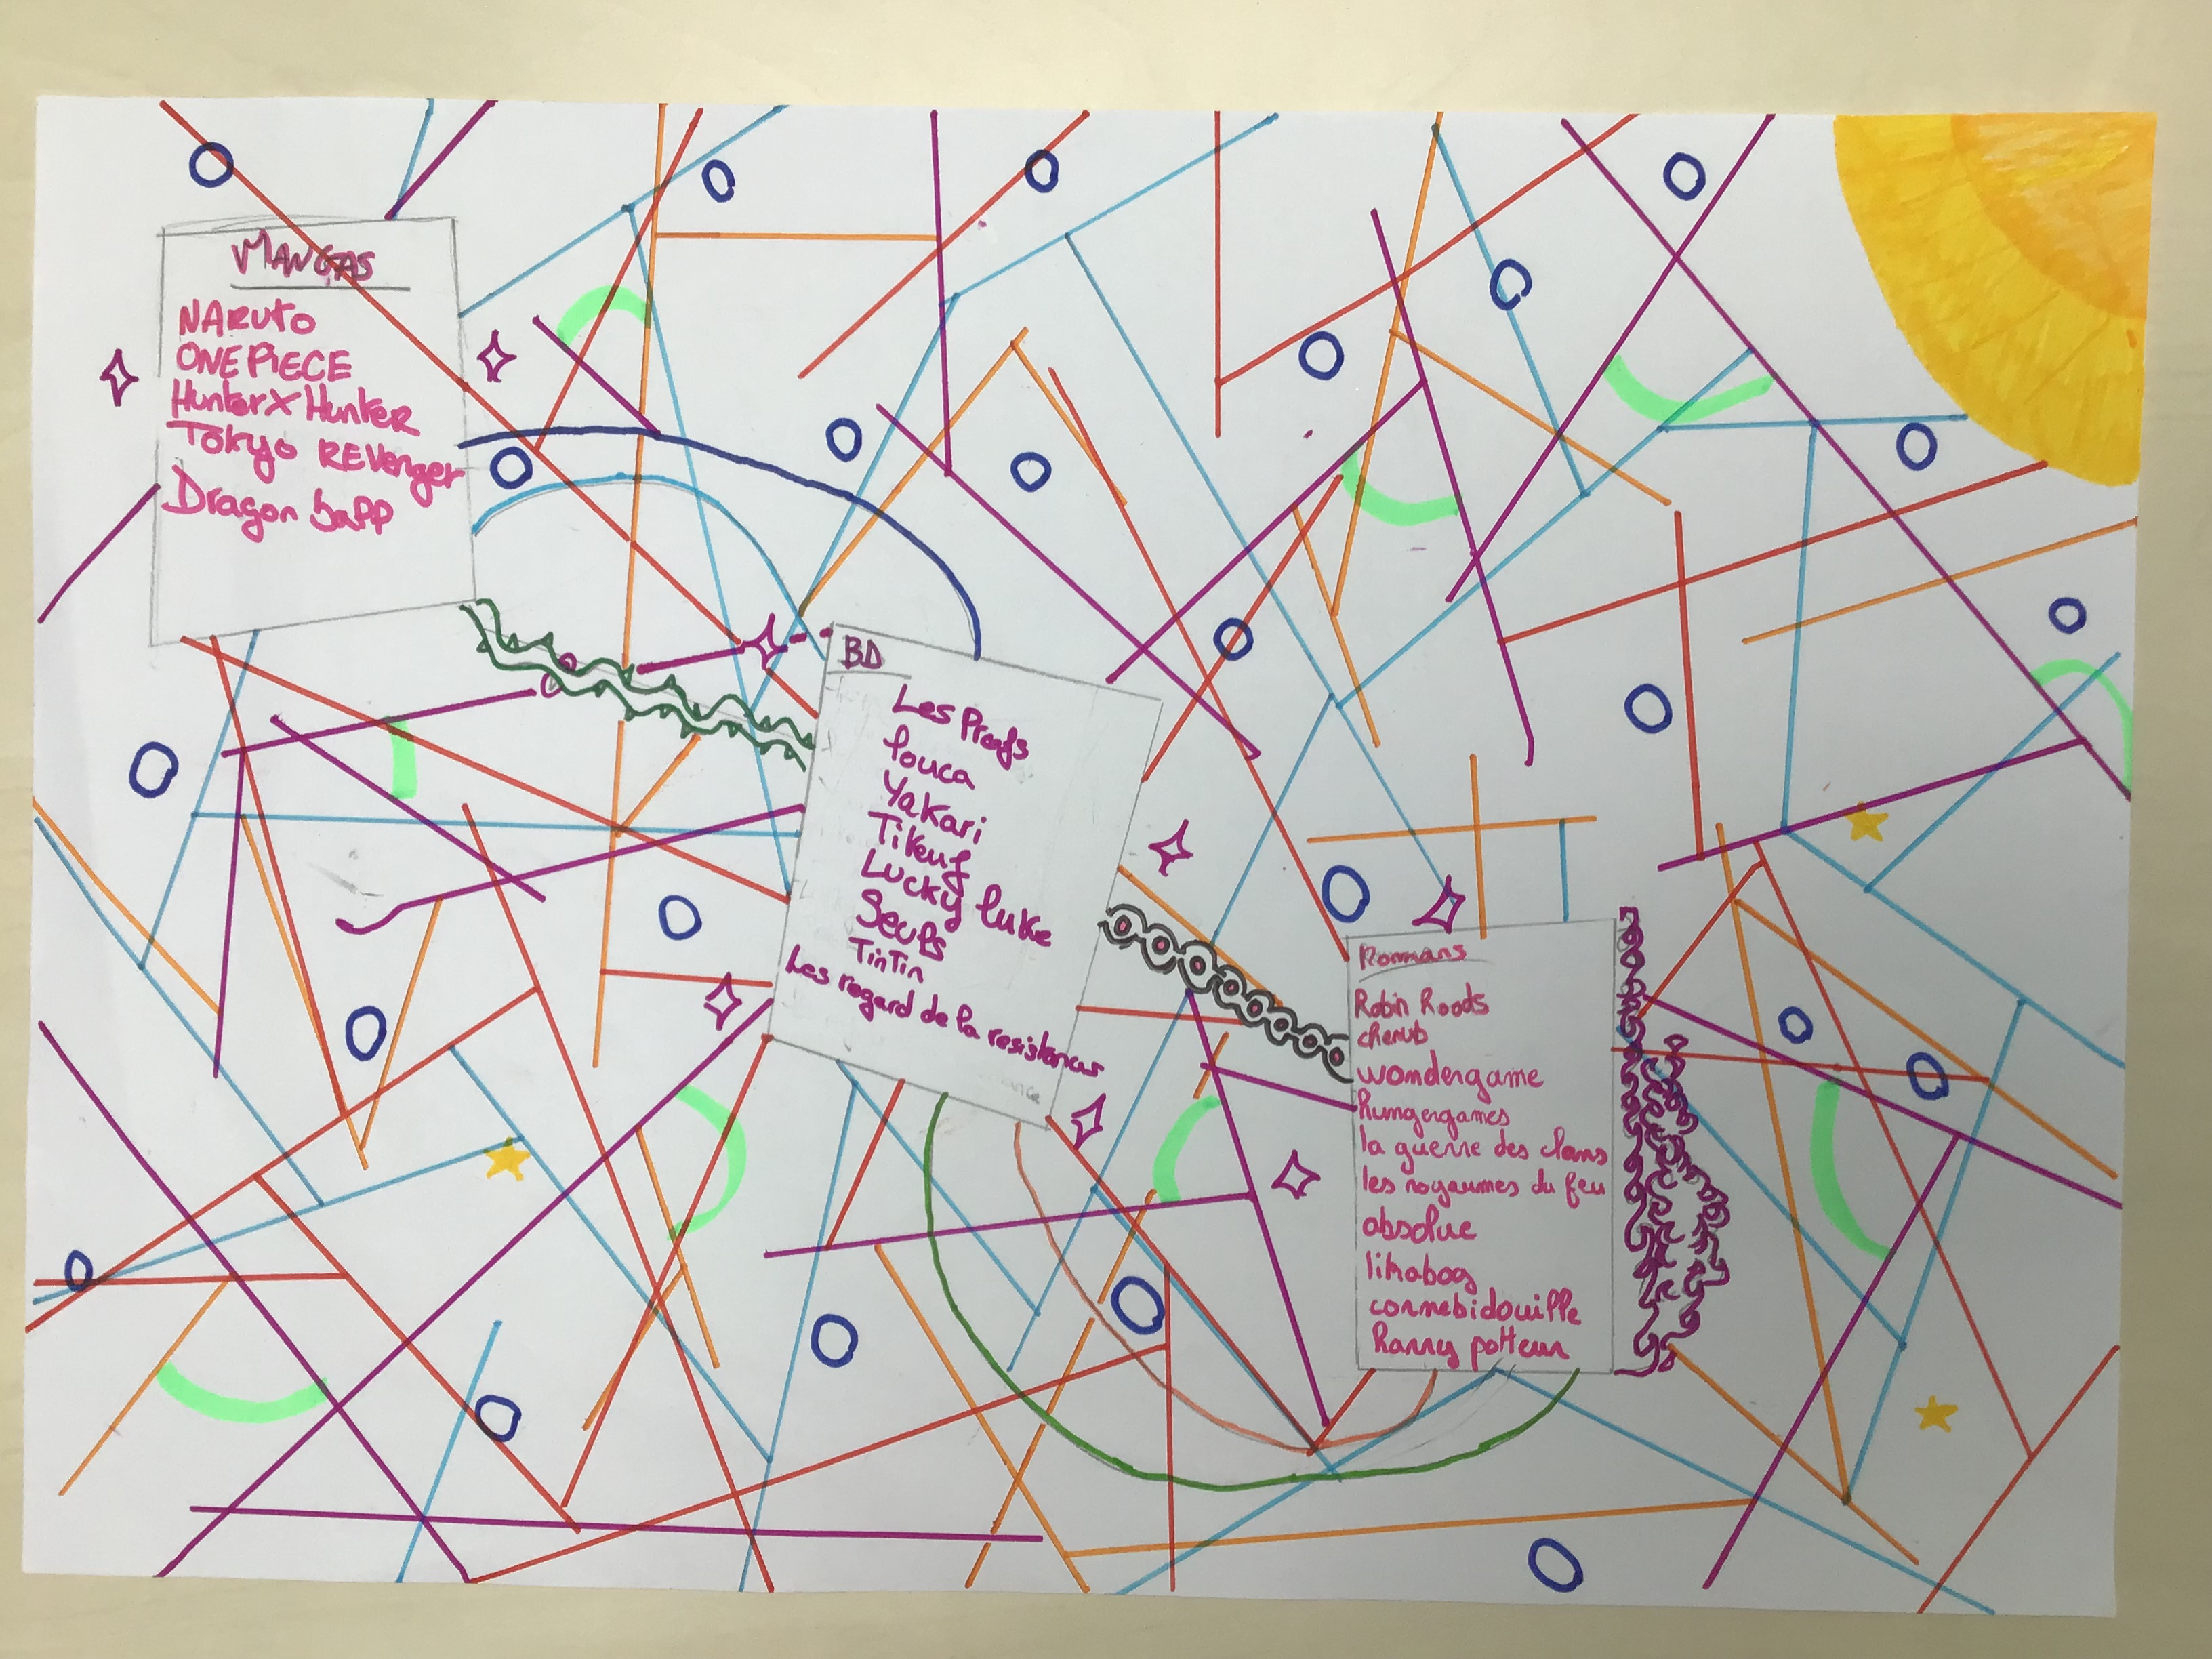 MANGAS
NARUTO
ONE PIECE
HunterXHunter
Tokyo REVenger
Dragon ball
BD
Les Profs
Louca
Yakari
Tikeuf
Lucky luke
Seuls
TinTin
Les regard de la resistances
ance
Rommans
Robin Hoods
cherub
wondergame
hungergames
la guerre des clans
les royaumes du feu
absolue
likabog
cornebidouille
harry potteur